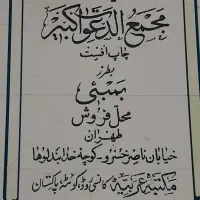 مجمع الدعوات الکبیر
چاپ افست
بطرز
بمبئی
محل فروش
طهران
خیابان ناصر خسرو - کوچه خدابنده لوها
مکتبہ عربیہ کانسی روڈ کوئٹہ پاکستان